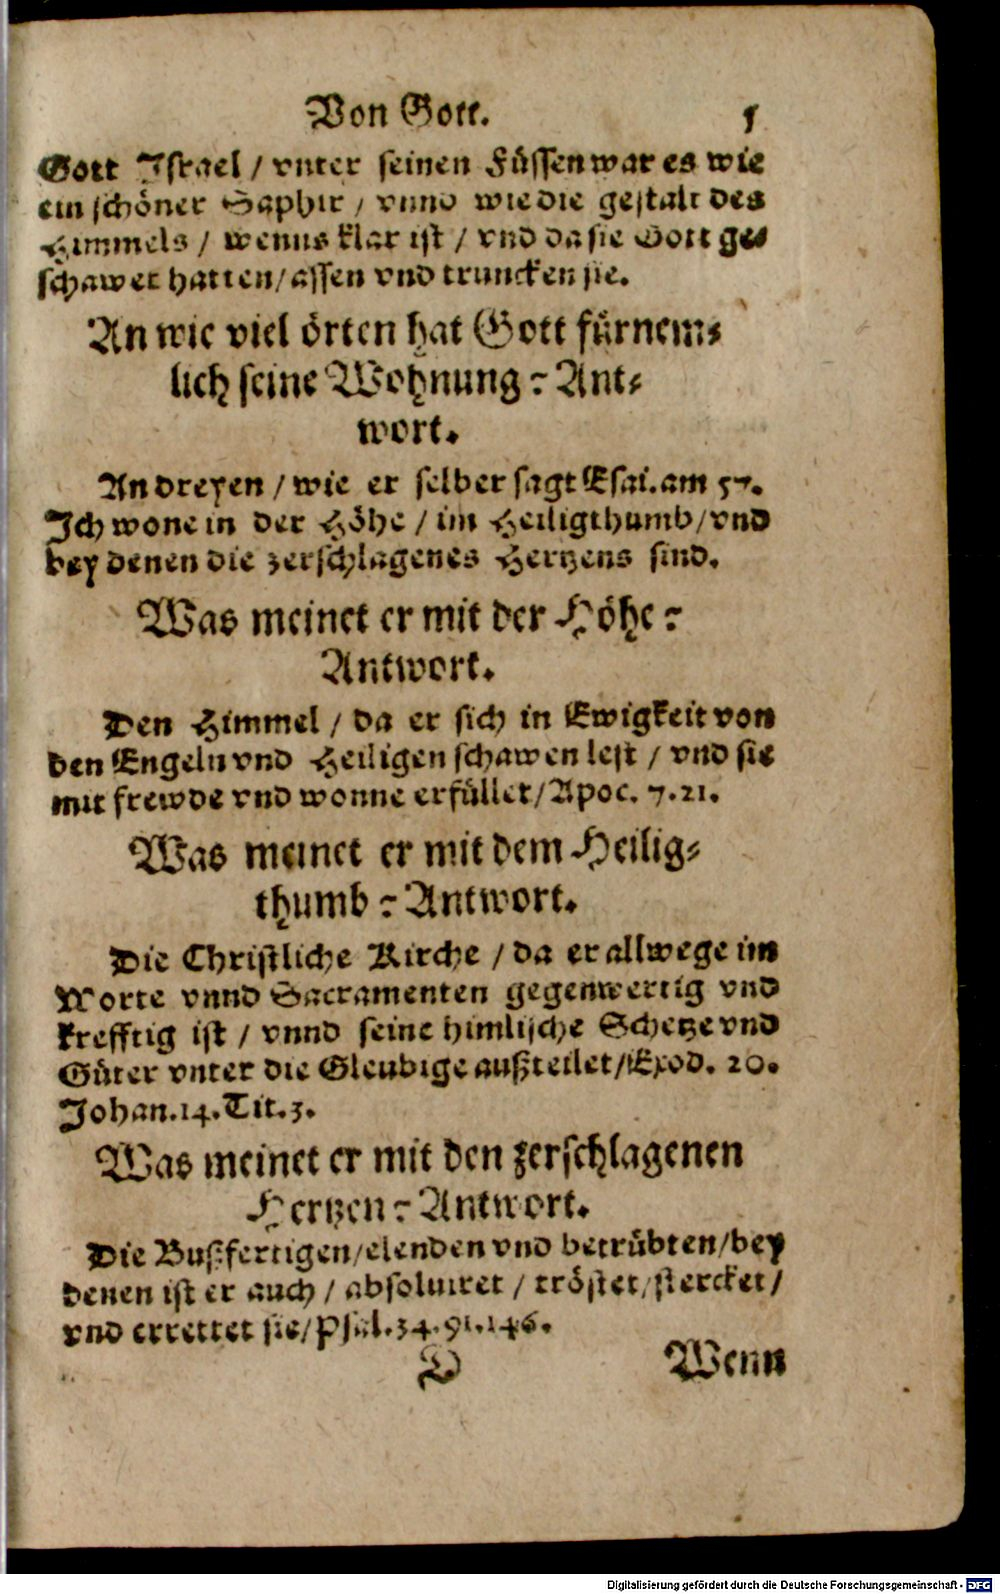 Von Gott. 5
Gott Israel / vnter seinen Füssen war es wie
ein schöner Saphir / vnnd wie die gestalt des
Himmels / wenns klar ist / vnd da sie Gott ge⸗
schawet hatten / assen vnd truncken sie.
An wie viel örten hat Gott fürnem⸗
lich seine Wohnung? Ant⸗
wort.
An dreyen / wie er selber sagt Esai. am 57.
Ich wone in der Höhe / im Heiligthumb / vnd
bey denen die zerschlagenes Hertzens sind.
Was meinet er mit der Höhe?
Antwort.
Den Himmel / da er sich in Ewigkeit von
den Engeln vnd Heiligen schawen lest / vnd sie
mit frewde vnd wonne erfüllet / Apoc. 7. 21.
Was meinet er mit dem Heilig⸗
thumb? Antwort.
Die Christliche Kirche / da er allwege im
Worte vnnd Sacramenten gegenwertig vnd
krefftig ist / vnnd seine himlische Schetze vnd
Güter vnter die Gleubige außteilet / Exod. 20.
Johan. 14. Tit. 3.
Was meinet er mit den zerschlagenen
Hertzen? Antwort.
Die Bußfertigen / elenden vnd betrübten / bey
denen ist er auch / absoluiret / tröstet / stercket /
vnd errettet sie / Psal. 34. 91. 146.
D Wenn
Digitalisierung gefördert durch die Deutsche Forschungsgemeinschaft - DFG